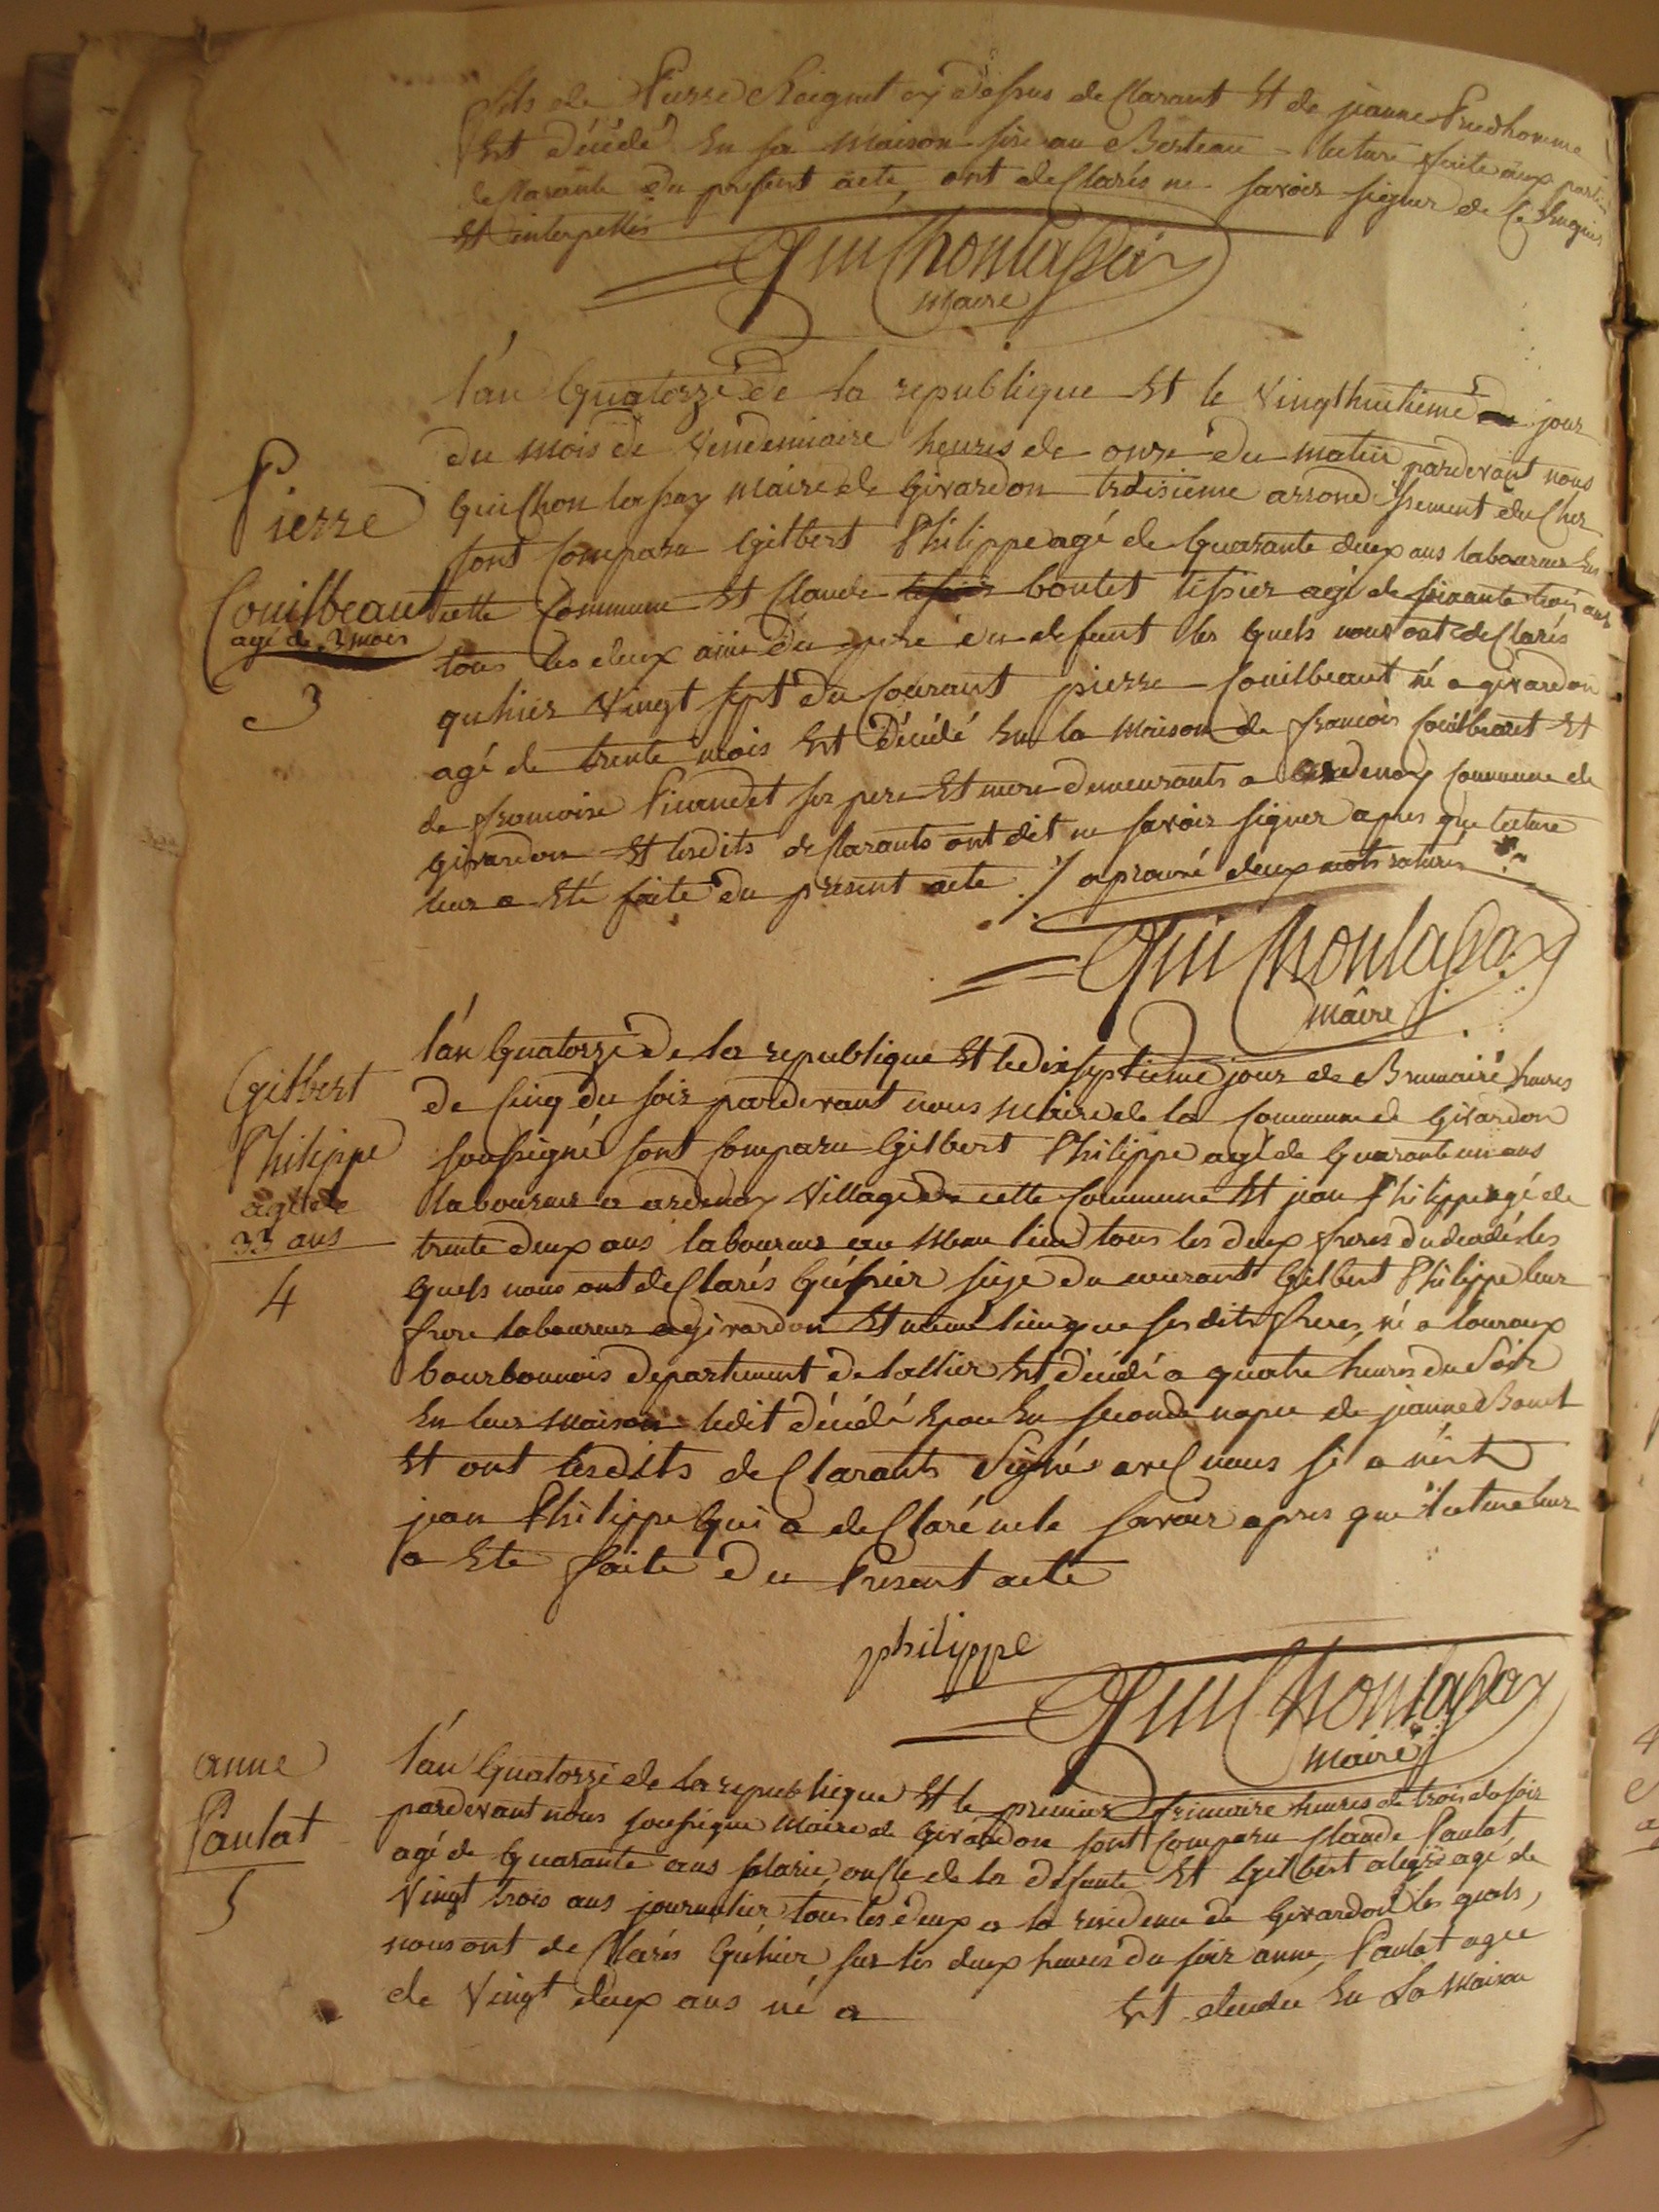 fils de Pierre Soignet cy dessus desClarant Et de jeanne Prudhomme
Est décédé En sa Maison sise au Berteau - lecture faite aux parties
desClarante du présent acte, ont desClarés ne savoir signer de Ce Enquis
Et interpellés
GuiChonlapay
Maire
l'an Quatorze de la republique Et le Vingthuitieme jour
du mois de Vendemiaire heures de onze du matin pardevant nous
GuiChon lapay Maire de Givardon troisieme arrondissement du Cher
sont Comparu Gilbert Philippe agé de Quarante deux ans laboureur En
Pierre
Couilbeaut
agé de 3 mois
3
cette Commune Et Claude boutet tissier agé de soixante trois ans
tous les deux amis du pere du defunt les Quels nous ont desClarés
qu'hier Vingt sept du Courant pierre Couilbeaut né a givardon
agé de trente mois Est Décédé En la Maison de francois Couilbeaut Et
de francoise Pinaudet ses pere Et mere demeurants a ardenay Commune de
givardon Et lesdits desClarants ont dit ne savoir signer apres que lecture
leur a Eté faite du present acte ./. aprouvé deux mots ratures
GuiChonlapay
mâire
Gilbert
Philippe
agé de
33 ans
4
l'an Quatorze De la republique Et le dix septieme jour de Brumaire heures
de Cinq du soir pardevant nous Maire de la Commune de Givardon
soussigné sont Comparu Gilbert Philippe agé de Quarante un ans
laboureur a ardenay Village de cette Commune Et jean Philippe agé de
trente deux ans laboureur au Meme lieu tous les deux freres du decedé les
Quels nous ont desClarés Qu'hier seize du courant Gilbert Philippe leur
frere laboureur a givardon Et même lieu que ses dits freres, né a Couraux
bourbonnois departement de lallier Est décédé a quatre heures du Soir
En leur Maison ledit décédé Epou En seconde nopce de jeanne Bonet
Et ont lesdits desClarants Signé aveC nous si a n'est
jean Philippe Qui a desClaré ne le savoir apres que lecture leur
a Eté faite du Present acte
philippe
GuiChonlapay
Maire
anne
Paulat
5
l'an Quatorze de la republique Et le premier frimaire heures de trois du soir
pardevant nous soussigné Maire de Givardon sont Comparu Claude Paulat
agé de Quarante ans, onCle de la defunte Et Gilbert alegre agé de
Vingt trois ans journalier tous les deux a la residence de Givardon les quels,
nous ont desClarés Qu'hier sur les deux heures du soir anne Paulat agee
de Vingt deux ans né a Est decedée En Sa Maison